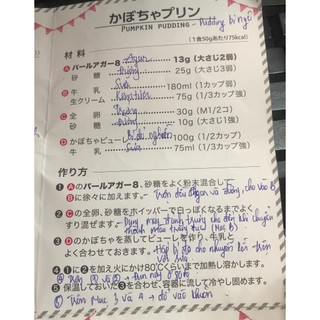 かぼちゃプリン
PUMPKIN PUDDING - Pudding bí ngô
(1食50gあたり75kcal)
材料
A パールアガー8 Agar 13g (大さじ2弱)
砂糖 đường 25g (大さじ3弱)
B 牛乳 Sữa 180ml (1カップ弱)
生クリーム Kem tươi 75g (1/3カップ強)
C 全卵 Trứng 30g (M1/2コ)
砂糖 đường 10g (大さじ1強)
D かぼちゃピューレ Bí đỏ nghiền 100g (1/2カップ)
牛乳 Sữa 75ml (1/3カップ強)
作り方
❶Aのパールアガー8、砂糖をよく粉末混合して
Bに徐々に加えます。 Trộn đều Agar và đường, cho vào B
❷Cの全卵、砂糖をホイッパーで白っぽくなるまでよく
すり混ぜます。 Dùng máy đánh trứng cho đến khi chuyển
thành màu trắng đục (Mục B)
❸Dのかぼちゃを蒸してピューレを作り、牛乳と
よく合わせておきます。 Hấp bí đỏ cho nhuyễn rồi trộn
với sữa
❹❶に❷を加え火にかけ80℃くらいまで加熱し溶かします。
❺保温しておいた❸を合わせ、容器に流して冷やし固めます。
Trộn Mục 3 và 4 → đổ vào khuôn